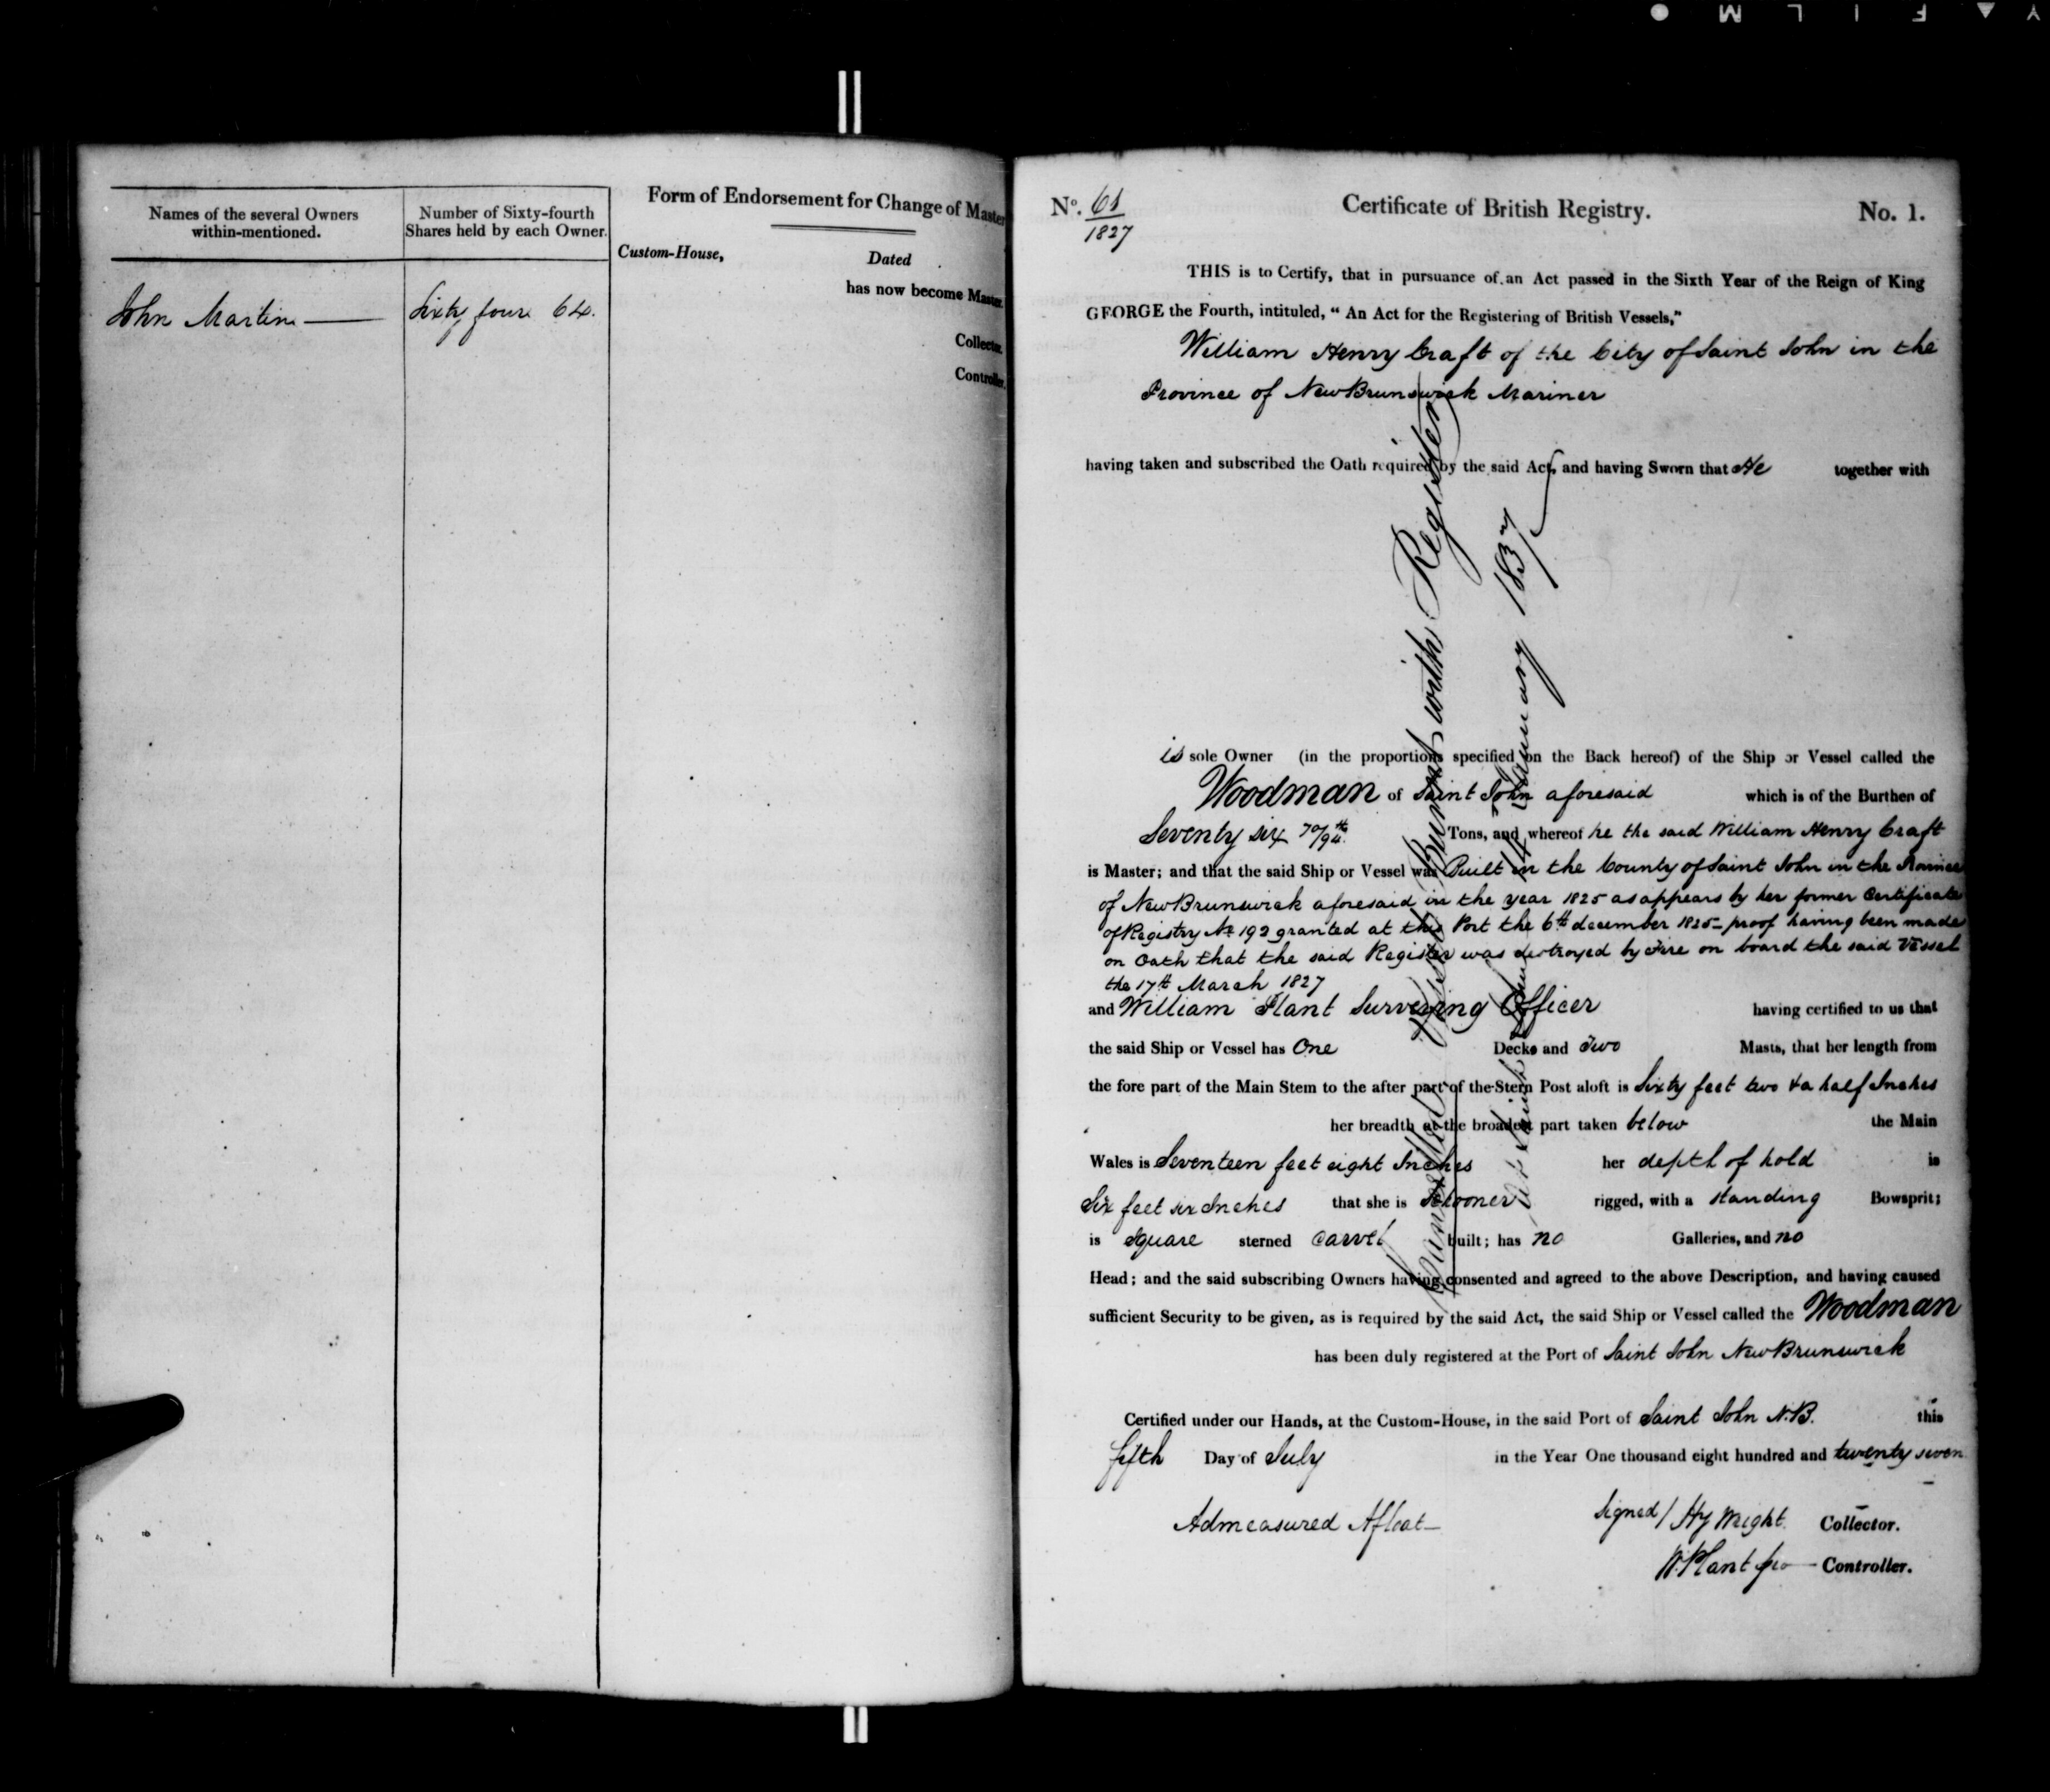 Y ▲ F I L M ●
Names of the several Owners within-mentioned.
Number of Sixty-fourth Shares held by each Owner.
John Martin
Sixty four 64.
Form of Endorsement for Change of Master
Custom-House,
Dated
has now become Master.
Collector.
Controller.
No. 61
1827
Certificate of British Registry.
No. 1.
THIS is to Certify, that in pursuance of an Act passed in the Sixth Year of the Reign of King
GEORGE the Fourth, intituled, “ An Act for the Registering of British Vessels,”
William Henry Craft of the City of Saint John in the
Province of NewBrunswick Mariner
having taken and subscribed the Oath required by the said Act, and having Sworn that He together with
is sole Owner (in the proportions specified on the Back hereof) of the Ship or Vessel called the
Woodman of Saint John aforesaid which is of the Burthen of
Seventy six 70/94th Tons, and whereof he the said William Henry Craft
is Master; and that the said Ship or Vessel was Built in the County of Saint John in the Province
of NewBrunswick aforesaid in the year 1825 as appears by her former Certificate
of Registry No 192 granted at this Port the 6th december 1825 - proof having been made
on Oath that the said Register was destroyed by Fire on board the said Vessel
the 17th March 1827
and William Plant Surveying Officer having certified to us that
the said Ship or Vessel has One Decks and Two Masts, that her length from
the fore part of the Main Stem to the after part of the Stern Post aloft is Sixty feet two & a half Inches
her breadth at the broadest part taken below the Main
Wales is Seventeen feet eight Inches her depth of hold is
Six feet six Inches that she is Schooner rigged, with a standing Bowsprit;
is Square sterned Carvel built; has no Galleries, and no
Head; and the said subscribing Owners having consented and agreed to the above Description, and having caused
sufficient Security to be given, as is required by the said Act, the said Ship or Vessel called the Woodman
has been duly registered at the Port of Saint John NewBrunswick
Certified under our Hands, at the Custom-House, in the said Port of Saint John N.B. this
fifth Day of July in the Year One thousand eight hundred and twenty seven
Admeasured Afloat
Signed / Hy Wright Collector.
W. Plant Controller.
Cancelled with Register
January 1837